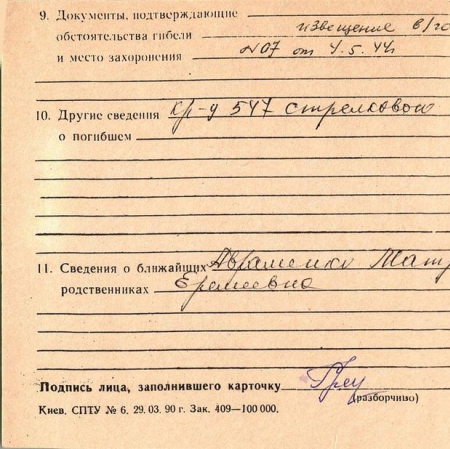 9. Документы, подтверждающие
обстоятельства гибели извещение в/ч
и место захоронения №07 от 4.5.44г
10. Другие сведения кр-ц 547 стрелкового
о погибшем
11. Сведения о ближайших Авраменко
родственниках Еремеевна
Подпись лица, заполнившего карточку
(разборчиво)
Киев, СПТУ № 6, 29.03.90 г. Зак. 409—100 000.